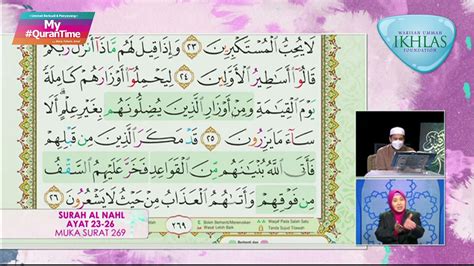 My
#QuranTime
WARISAN UMMAH
IKHLAS
FOUNDATION
لَا يُحِبُّ الْمُسْتَكْبِرِينَ ٢٣ وَإِذَا قِيلَ لَهُم مَّاذَا أَنزَلَ رَبُّكُمْ
قَالُوا أَسَاطِيرُ الْأَوَّلِينَ ٢٤ لِيَحْمِلُوا أَوْزَارَهُمْ كَامِلَةً
يَوْمَ الْقِيَامَةِ وَمِنْ أَوْزَارِ الَّذِينَ يُضِلُّونَهُم بِغَيْرِ عِلْمٍ أَلَا
سَاءَ مَا يَزِرُونَ ٢٥ قَدْ مَكَرَ الَّذِينَ مِن قَبْلِهِمْ
فَأَتَى اللَّهُ بُنْيَانَهُم مِّنَ الْقَوَاعِدِ فَخَرَّ عَلَيْهِمُ السَّقْفُ
مِن فَوْقِهِمْ وَأَتَاهُمُ الْعَذَابُ مِنْ حَيْثُ لَا يَشْعُرُونَ ٢٦
SURAH AL NAHL
AYAT 23-26
MUKA SURAT 269
٢٦٩